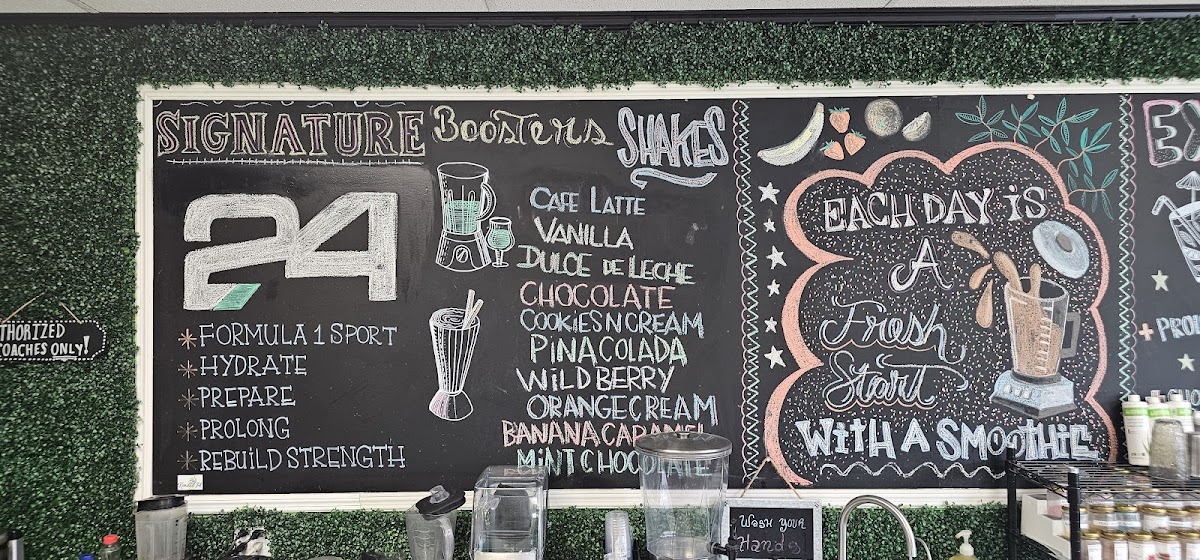 SIGNATURE Boosters SHAKES
24
* FORMULA 1 SPORT
* HYDRATE
* PREPARE
* PROLONG
* REBUILD STRENGTH
CAFE LATTE
VANILLA
DULCE DE LECHE
CHOCOLATE
COOKIES N CREAM
PINA COLADA
WILD BERRY
ORANGE CREAM
BANANA CARAMEL
MINT CHOCOLATE
EACH DAY is
A
Fresh
Start
WITH A SMOOTHIE
EX
+ PROL
THORIZED
OACHES ONLY!
WASH YOUR
Hands